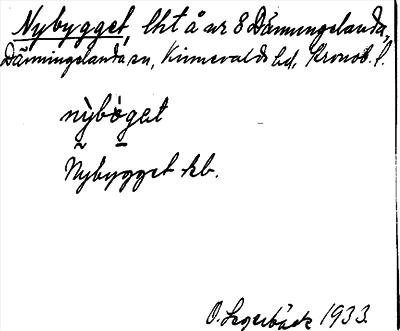 Nybygget, lht å nr 8 Dänningelanda,
Dänningelanda sn, Kinnevalds hd, Kronob. l.
nỳbøget
Nybygget kb.
O. Lagerbäck 1933.